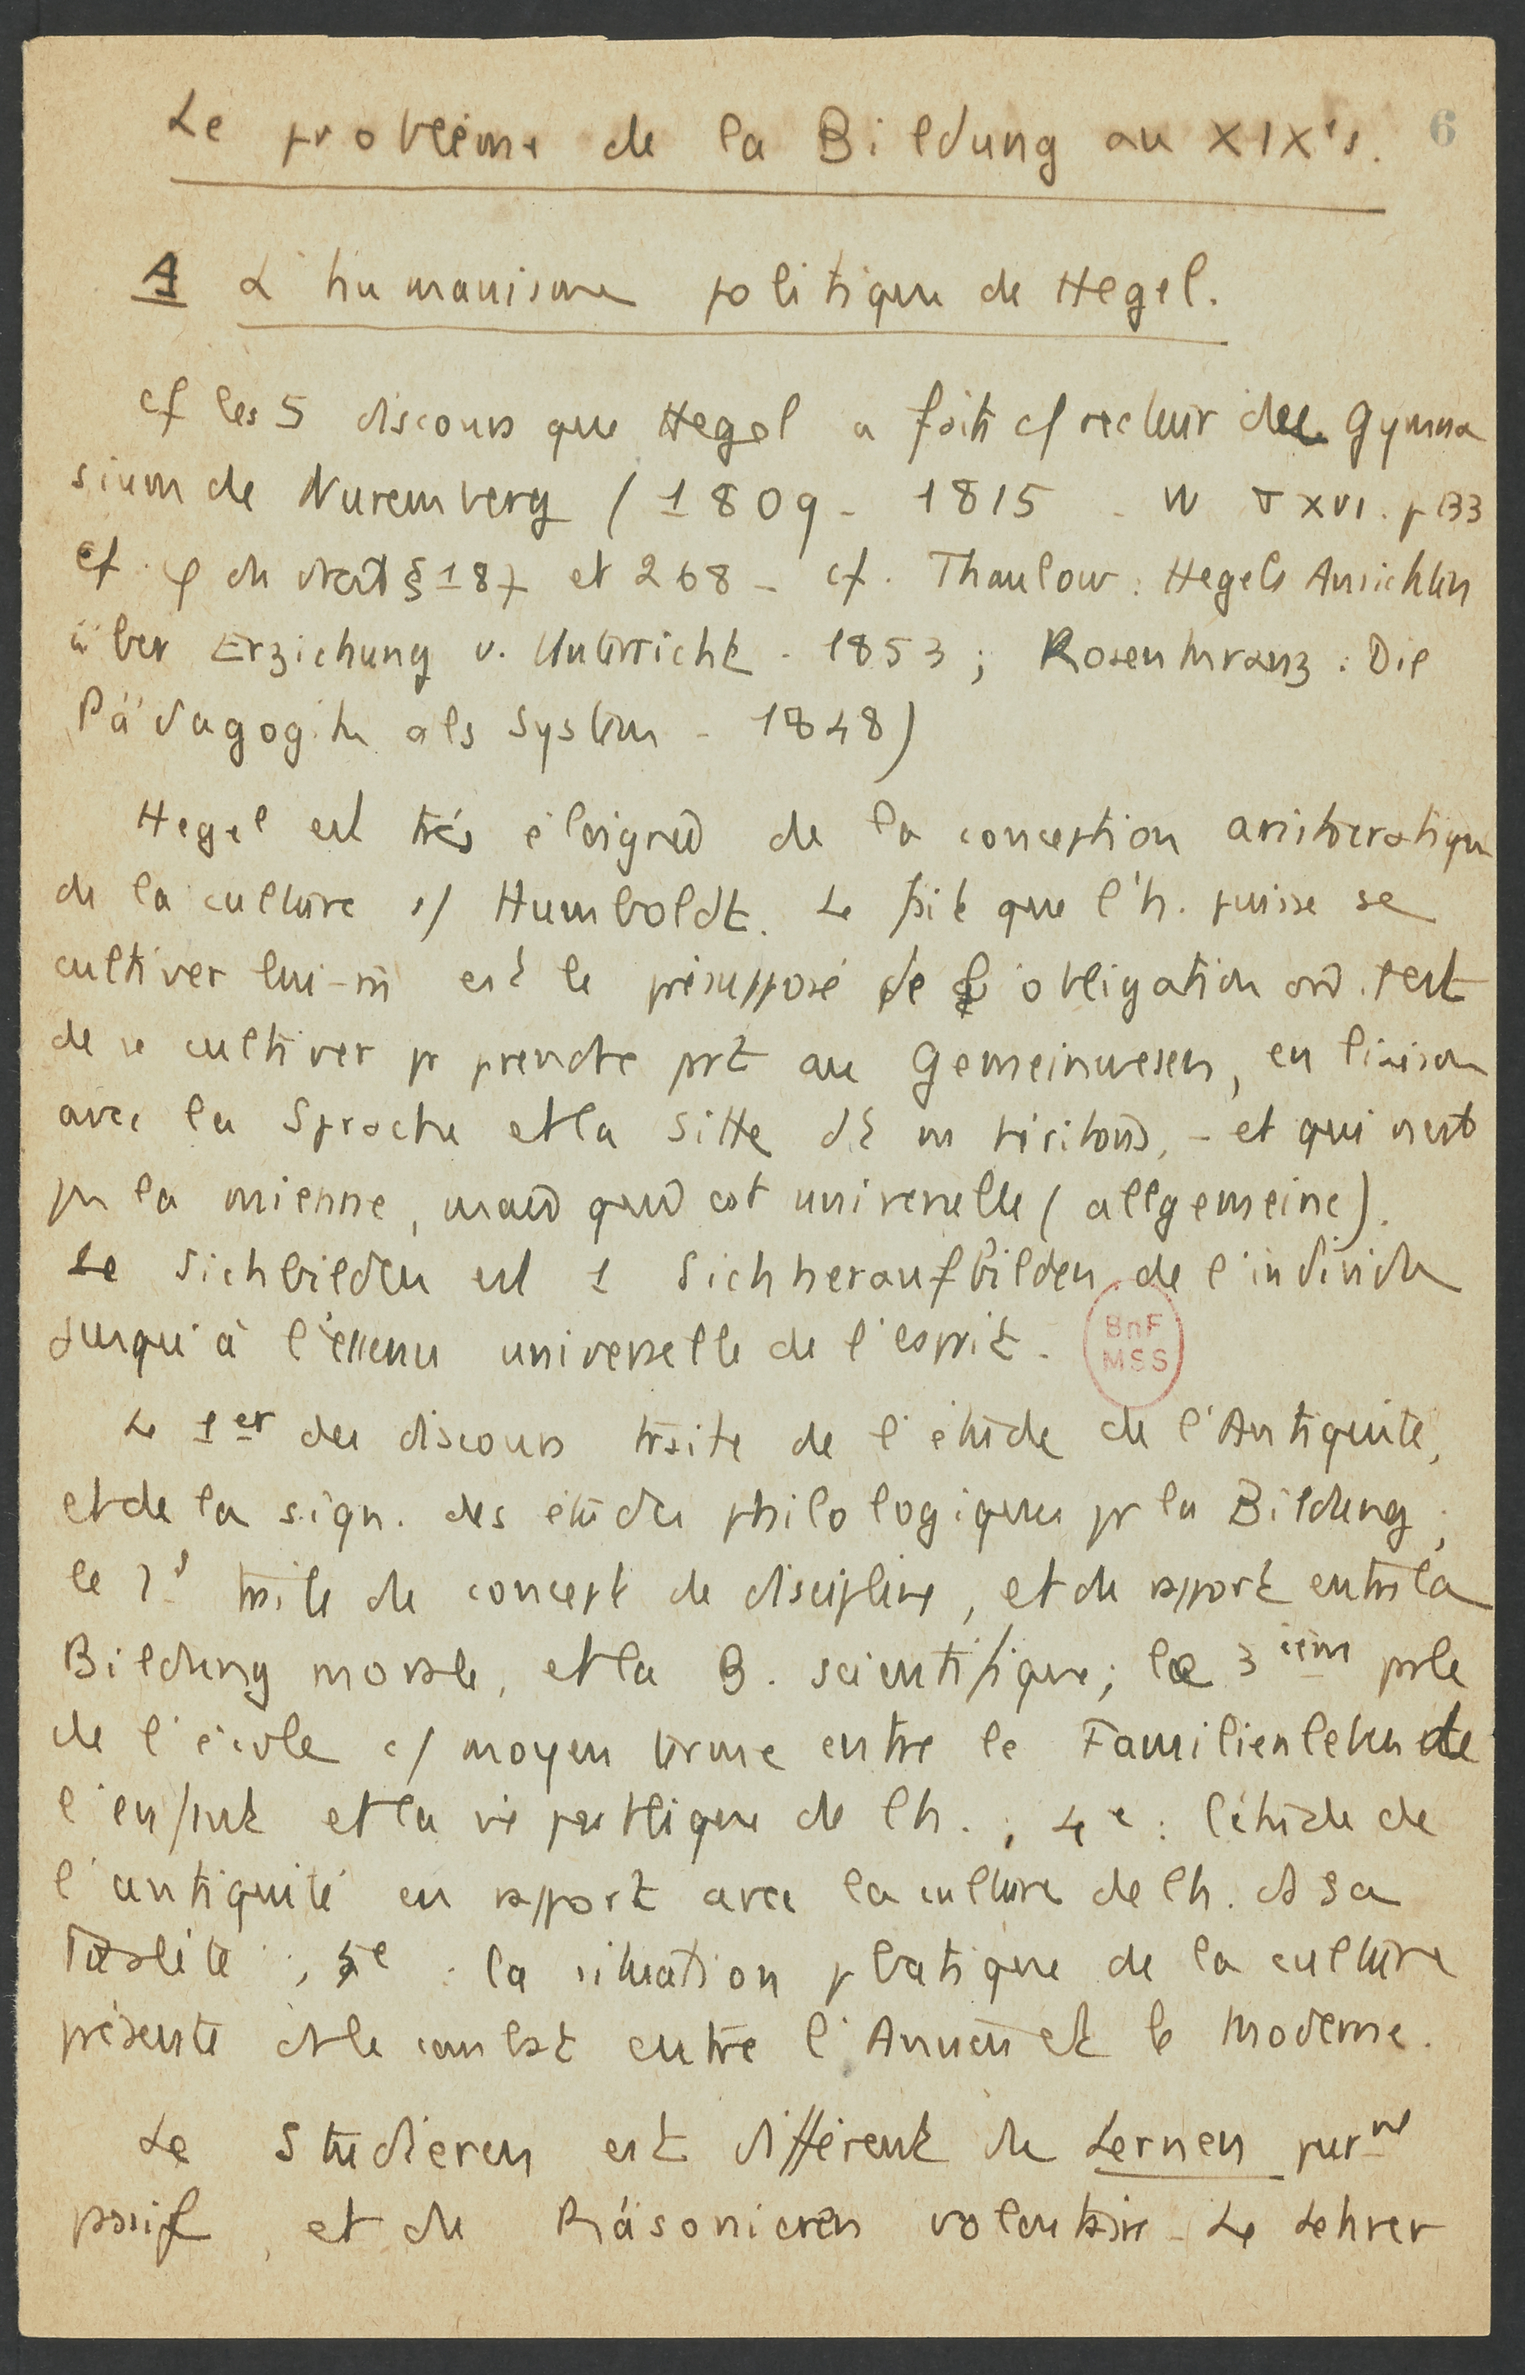 Le problème de la Bildung au XIXe s.
6
A L'humanisme politique de Hegel.
cf les 5 discours que Hegel a faits c/ recteur du Gymna
sium de Nuremberg (1809 - 1815 - W T XVI. p 133
cf. φ du droit § 187 et 268 - cf. Thaulow : Hegels Ansichten
über Erziehung u. Unterricht - 1853 ; Rosenkranz : Die
Pädagogik als System - 1848)
Hegel est très éloigné de la conception aristocratique
de la culture c/ Humboldt. Le fait que l'h. puisse se
cultiver lui-m̄ est le présupposé de l'obligation
de se cultiver pr prendre part au Gemeinwesen, en liaison
avec la Sprache et la Sitte - et qui n'est
pas la mienne, mais qui est universelle (allgemeine).
Le Sichbilden est 1 Sichheraufbilden de l'individu
jusqu'à l'essence universelle de l'esprit.
BnF
MSS
Le 1er des discours traite de l'étude de l'Antiquité,
et de la sign. des études philologiques pr la Bildung ;
le 2d traite du concept de discipline, et du rapport entre la
Bildung morale, et la B. scientifique ; le 3ième parle
de l'école c/ moyen terme entre le Familienleben de
l'enfant et la vie publique de l'h. ; 4e : l'étude de
l'antiquité en rapport avec la culture de l'h. ds sa
totalité ; 5e : la situation pratique de la culture
présente et le combat entre l'Ancien et le Moderne.
Le Studieren est différent du Lernen purnt
passif, et du Räsonieren volontaire - Le Lehrer